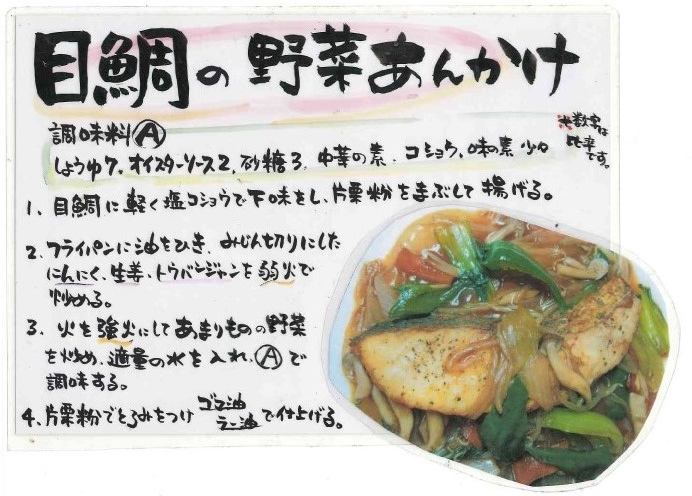 目鯛の野菜あんかけ
調味料Ⓐ
しょうゆ7、オイスターソース2、砂糖3、中華の素、コショウ、味の素 少々
※数字は
比率です。
1、目鯛に軽く塩コショウで下味をし、片栗粉をまぶして揚げる。
2、フライパンに油をひき、みじん切りにした
にんにく、生姜、トウバンジャンを弱火で
炒める。
3、火を強火にしてあまりものの野菜
を炒め、適量の水を入れ、Ⓐで
調味する。
4、片栗粉でとろみをつけ ゴマ油
ラー油で仕上げる。